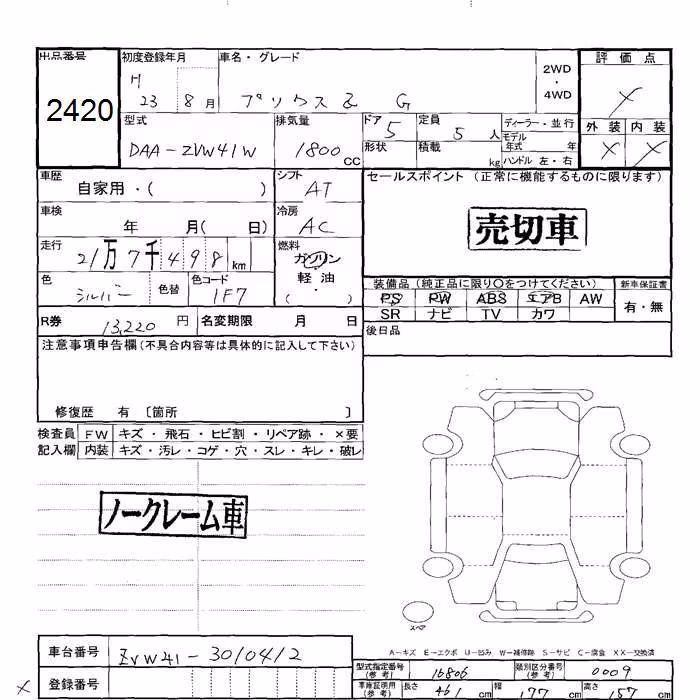 出品番号
2420
初度登録年月
H 23 8 月
車名・グレード
プリウスα G
2WD
・
4WD
評価点
×
外装 内装
× ×
型式
DAA-ZVW41W
排気量
1800 cc
ドア 5
形状
定員 5 人
積載 kg
ディーラー・並行
モデル
年式 年
ハンドル 左・右
車歴
自家用・( )
シフト
AT
車検
年 月( 日)
冷房
AC
走行
21万7千498km
燃料
ガソリン
軽油
( ・ )
色
シルバー
色替
色コード
1F7
セールスポイント(正常に機能するものに限ります)
売切車
装備品(純正品に限り○をつけてください)
PS PW ABS エアB AW
SR ナビ TV カワ
新車保証書
有・無
後日品
R券 13,220 円
名変期限 月 日
注意事項申告欄(不具合内容等は具体的に記入して下さい)
修復歴 有 〔箇所 〕
検査員 FW キズ・飛石・ヒビ割・リペア跡・×要
記入欄 内装 キズ・汚レ・コゲ・穴・スレ・キレ・破レ
ノークレーム車
スペア
A-キズ E-エクボ U-凹み W-補修跡 S-サビ C-腐食 XX-交換済
車台番号 ZVW41-3010412
登録番号
×
型式指定番号
(参考)
16806
類別区分番号
(参考)
0009
車庫証明用
(参考)
長さ 461 cm
幅 177 cm
高さ 157 cm